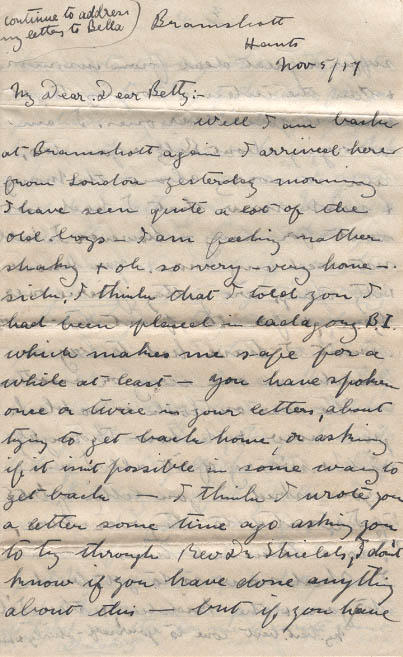 continue to address
my letters to Bella
Bramshott
Hants
Nov 5/17
My Dear. Dear Betty:-
Well I am back
at Bramshott again I arrived here
from London yesterday morning
I have seen quite a lot of the
old boys - I am feeling rather
shaky + oh. so very - very home -
sick; I think that I told you I
had been placed in catagory B I
which makes me safe for a
while at least - you have spoken
once or twice in your letters, about
trying to get back home, or asking
if it isn't possible in some way to
get back - I think I wrote you
a letter some time ago asking you
to try through Rev Dr Shields, I don't
know if you have done anything
about this - but if you have